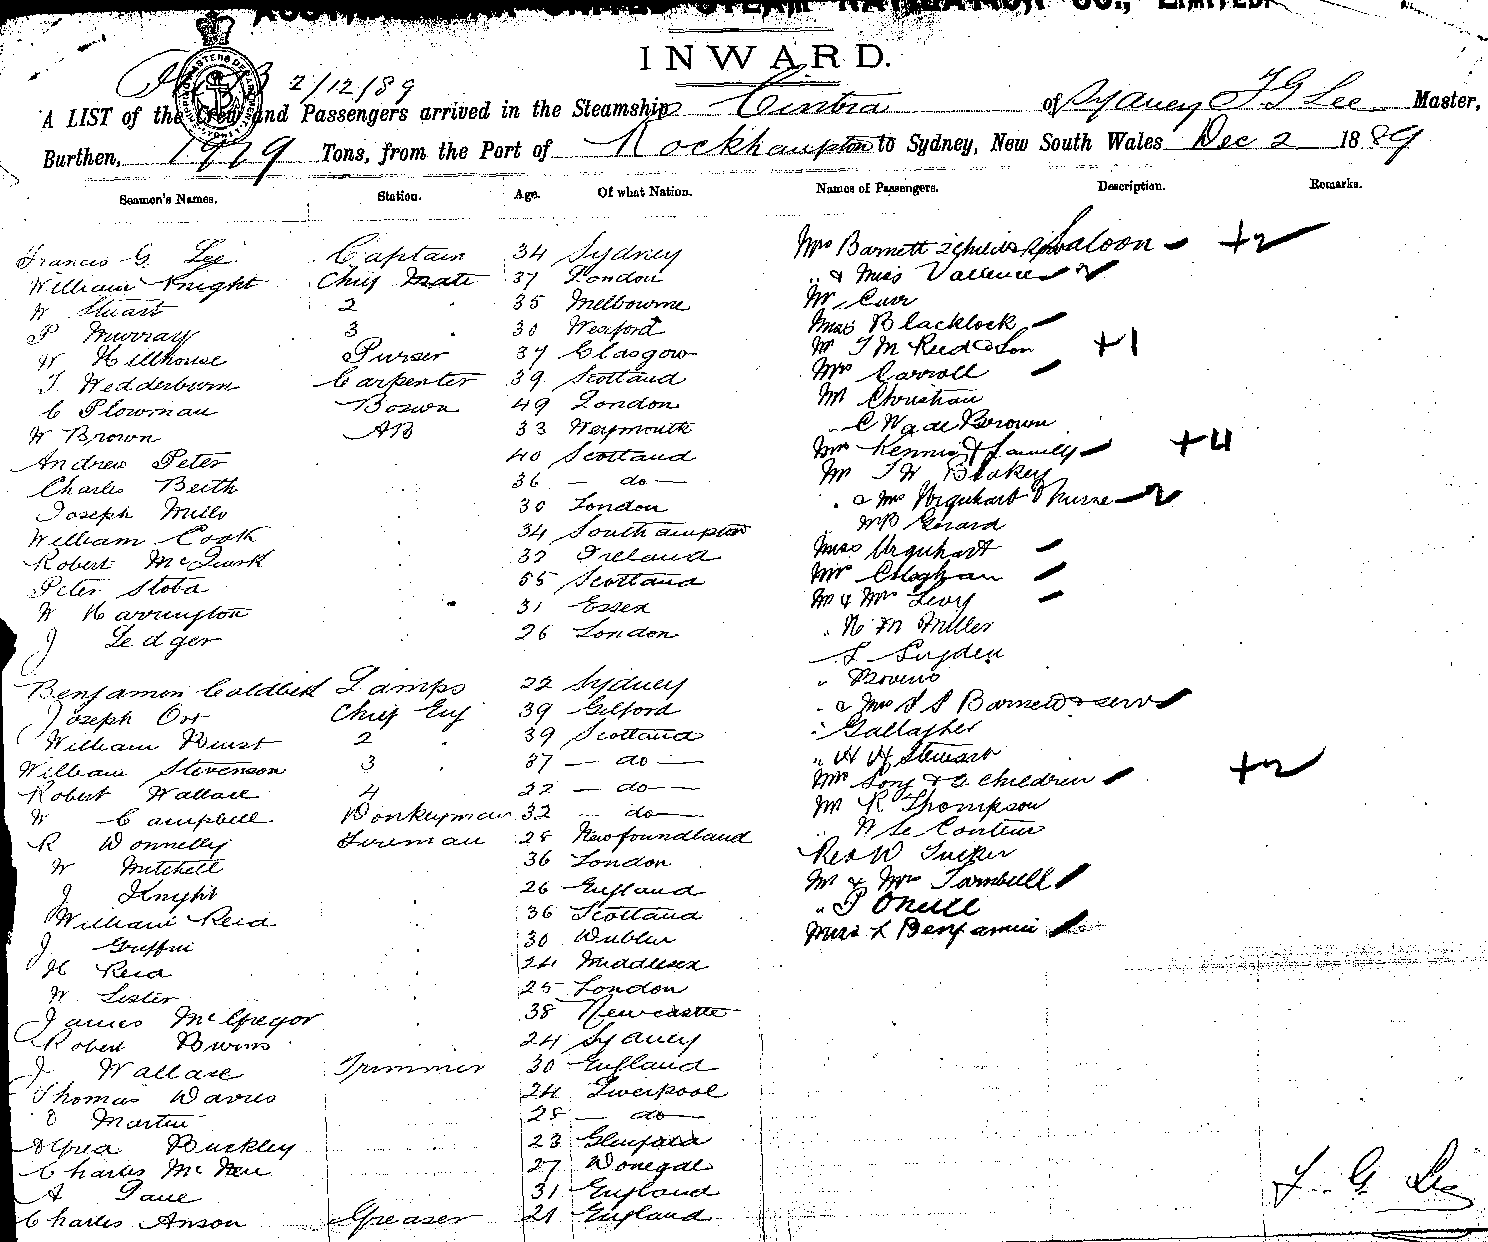 AUSTRALASIAN UNITED STEAM NAVIGATION CO., LIMITED.
INWARD.
2/12/89
A LIST of the Crew and Passengers arrived in the Steamship Cintra of Sydney F G Lee Master,
Burthen, 1979 Tons, from the Port of Rockhampton to Sydney, New South Wales Dec 2 1889
Seamen's Names. Station. Age. Of what Nation. Names of Passengers. Description. Remarks.
Francis G. Lee Captain 34 Sydney Mrs Barnett 2 children Saloon +2
William Knight Chief Mate 37 London " & Miss Vallence
W Stuart 2 " 35 Melbourne Mr Curr
P Murray 3 " 30 Wexford Miss Blacklock
W Hillhouse Purser 37 Glasgow Mr T M Reed & Son +1
T. Wedderburn Carpenter 39 Scotland Mrs Carroll
C Plowman Bosun 49 London Mr Christian
W Brown AB 33 Weymouth " C Wade Brown
Andrew Peter 40 Scotland Mrs Kenniss & family +4
Charles Beith 36 — do — Mr T W Blakey
Joseph Mills 30 London " & Mrs Urquhart & Nurse
William Cook 34 Southampton Mr Gerard
Robert McQuirk 32 Ireland Miss Urquhart
Peter Stoba 55 Scotland Mrs
W Harrington 31 Essex Mr & Mrs Levy
J Ledger 26 London " H M Miller
" Sugden
Benjamin Lamps 22 Sydney "
Joseph Orr Chief Eng 39 Gilford " & Mrs S S Barnett & serv
William 2 " 39 Scotland " Gallagher
William Stevenson 3 " 37 — do — " H H Stewart
Robert Wallace 4 22 — do — Mrs Song & 2 children +2
W Campbell Donkeyman 32 — do — Mr R Thompson
R Donnelly Fireman 28 Newfoundland " Le Couteur
W Mitchell 36 London Rev W Tucker
J Knight 26 England Mr & Mrs Turnbull
William Reid 36 Scotland " P O'Neill
J Griffin 30 Dublin Miss L Benjamin
H Reid 24 Middlesex
W Lister 25 London
James McGregor 38 Newcastle
Robert 24 Sydney
J Wallace Trimmer 30 England
Thomas Davies 24 Liverpool
D Martin 28 — do —
Alfred Buckley 23
Charles McNee 27 Donegal
A Pane 31 England
Charles Anson Greaser 21 England
F. G. Lee